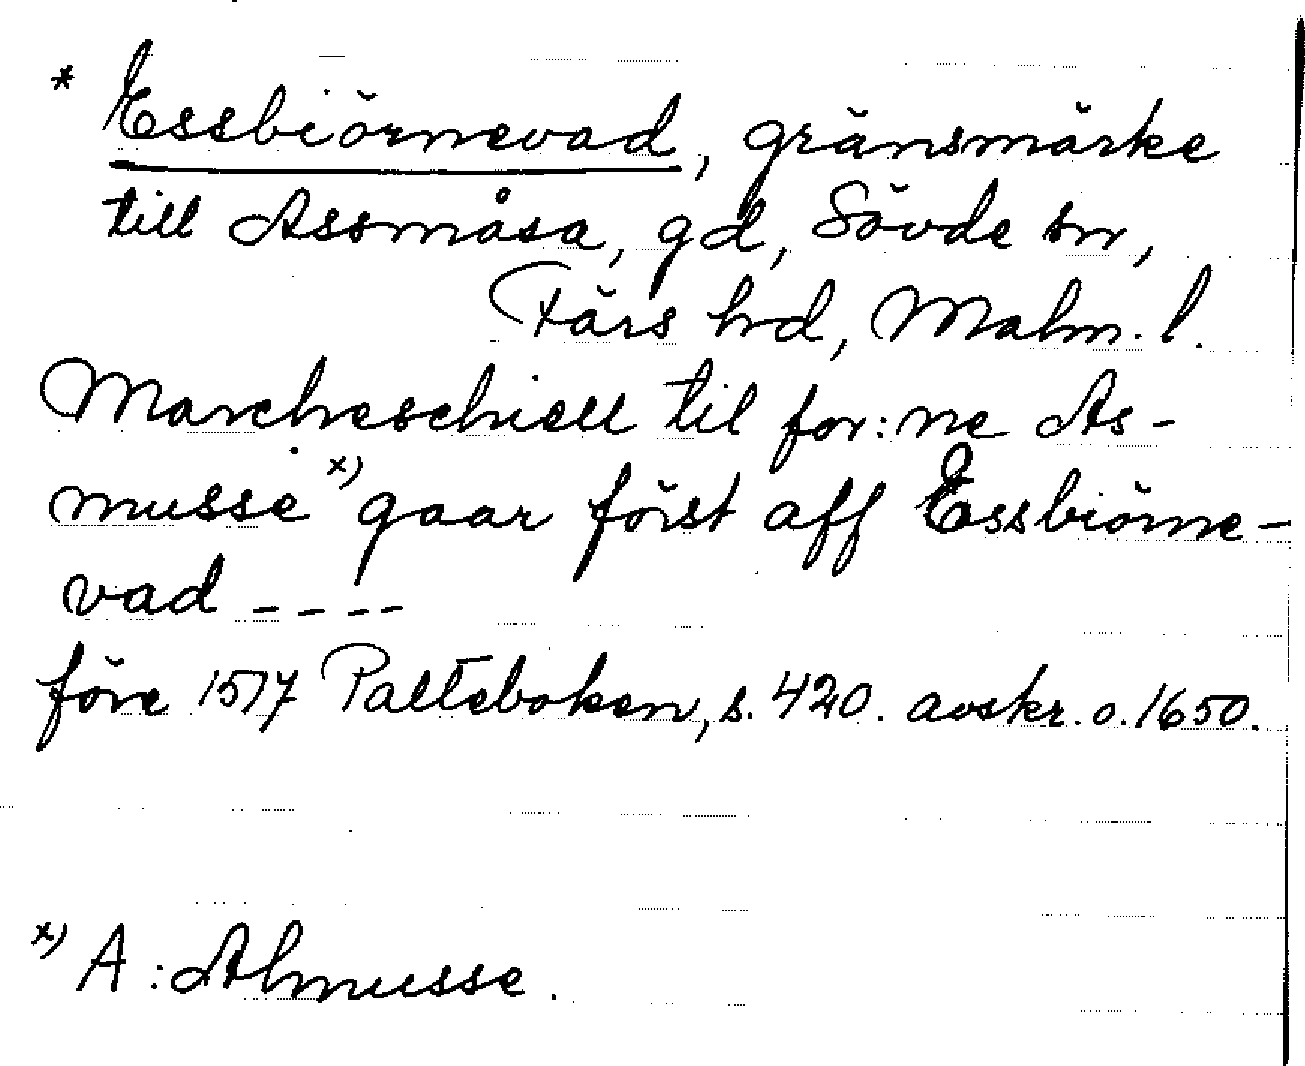 * Essbiörnevad, gränsmärke
till Assmåsa, gd, Sövde sn,
Färs hd, Malm. l.
Marcheschiell til for:ne As-
musse x) gaar först aff Essbiörne-
vad ----
före 1517 Palteboken, s. 420. avskr. o. 1650.
x) A : Almusse.